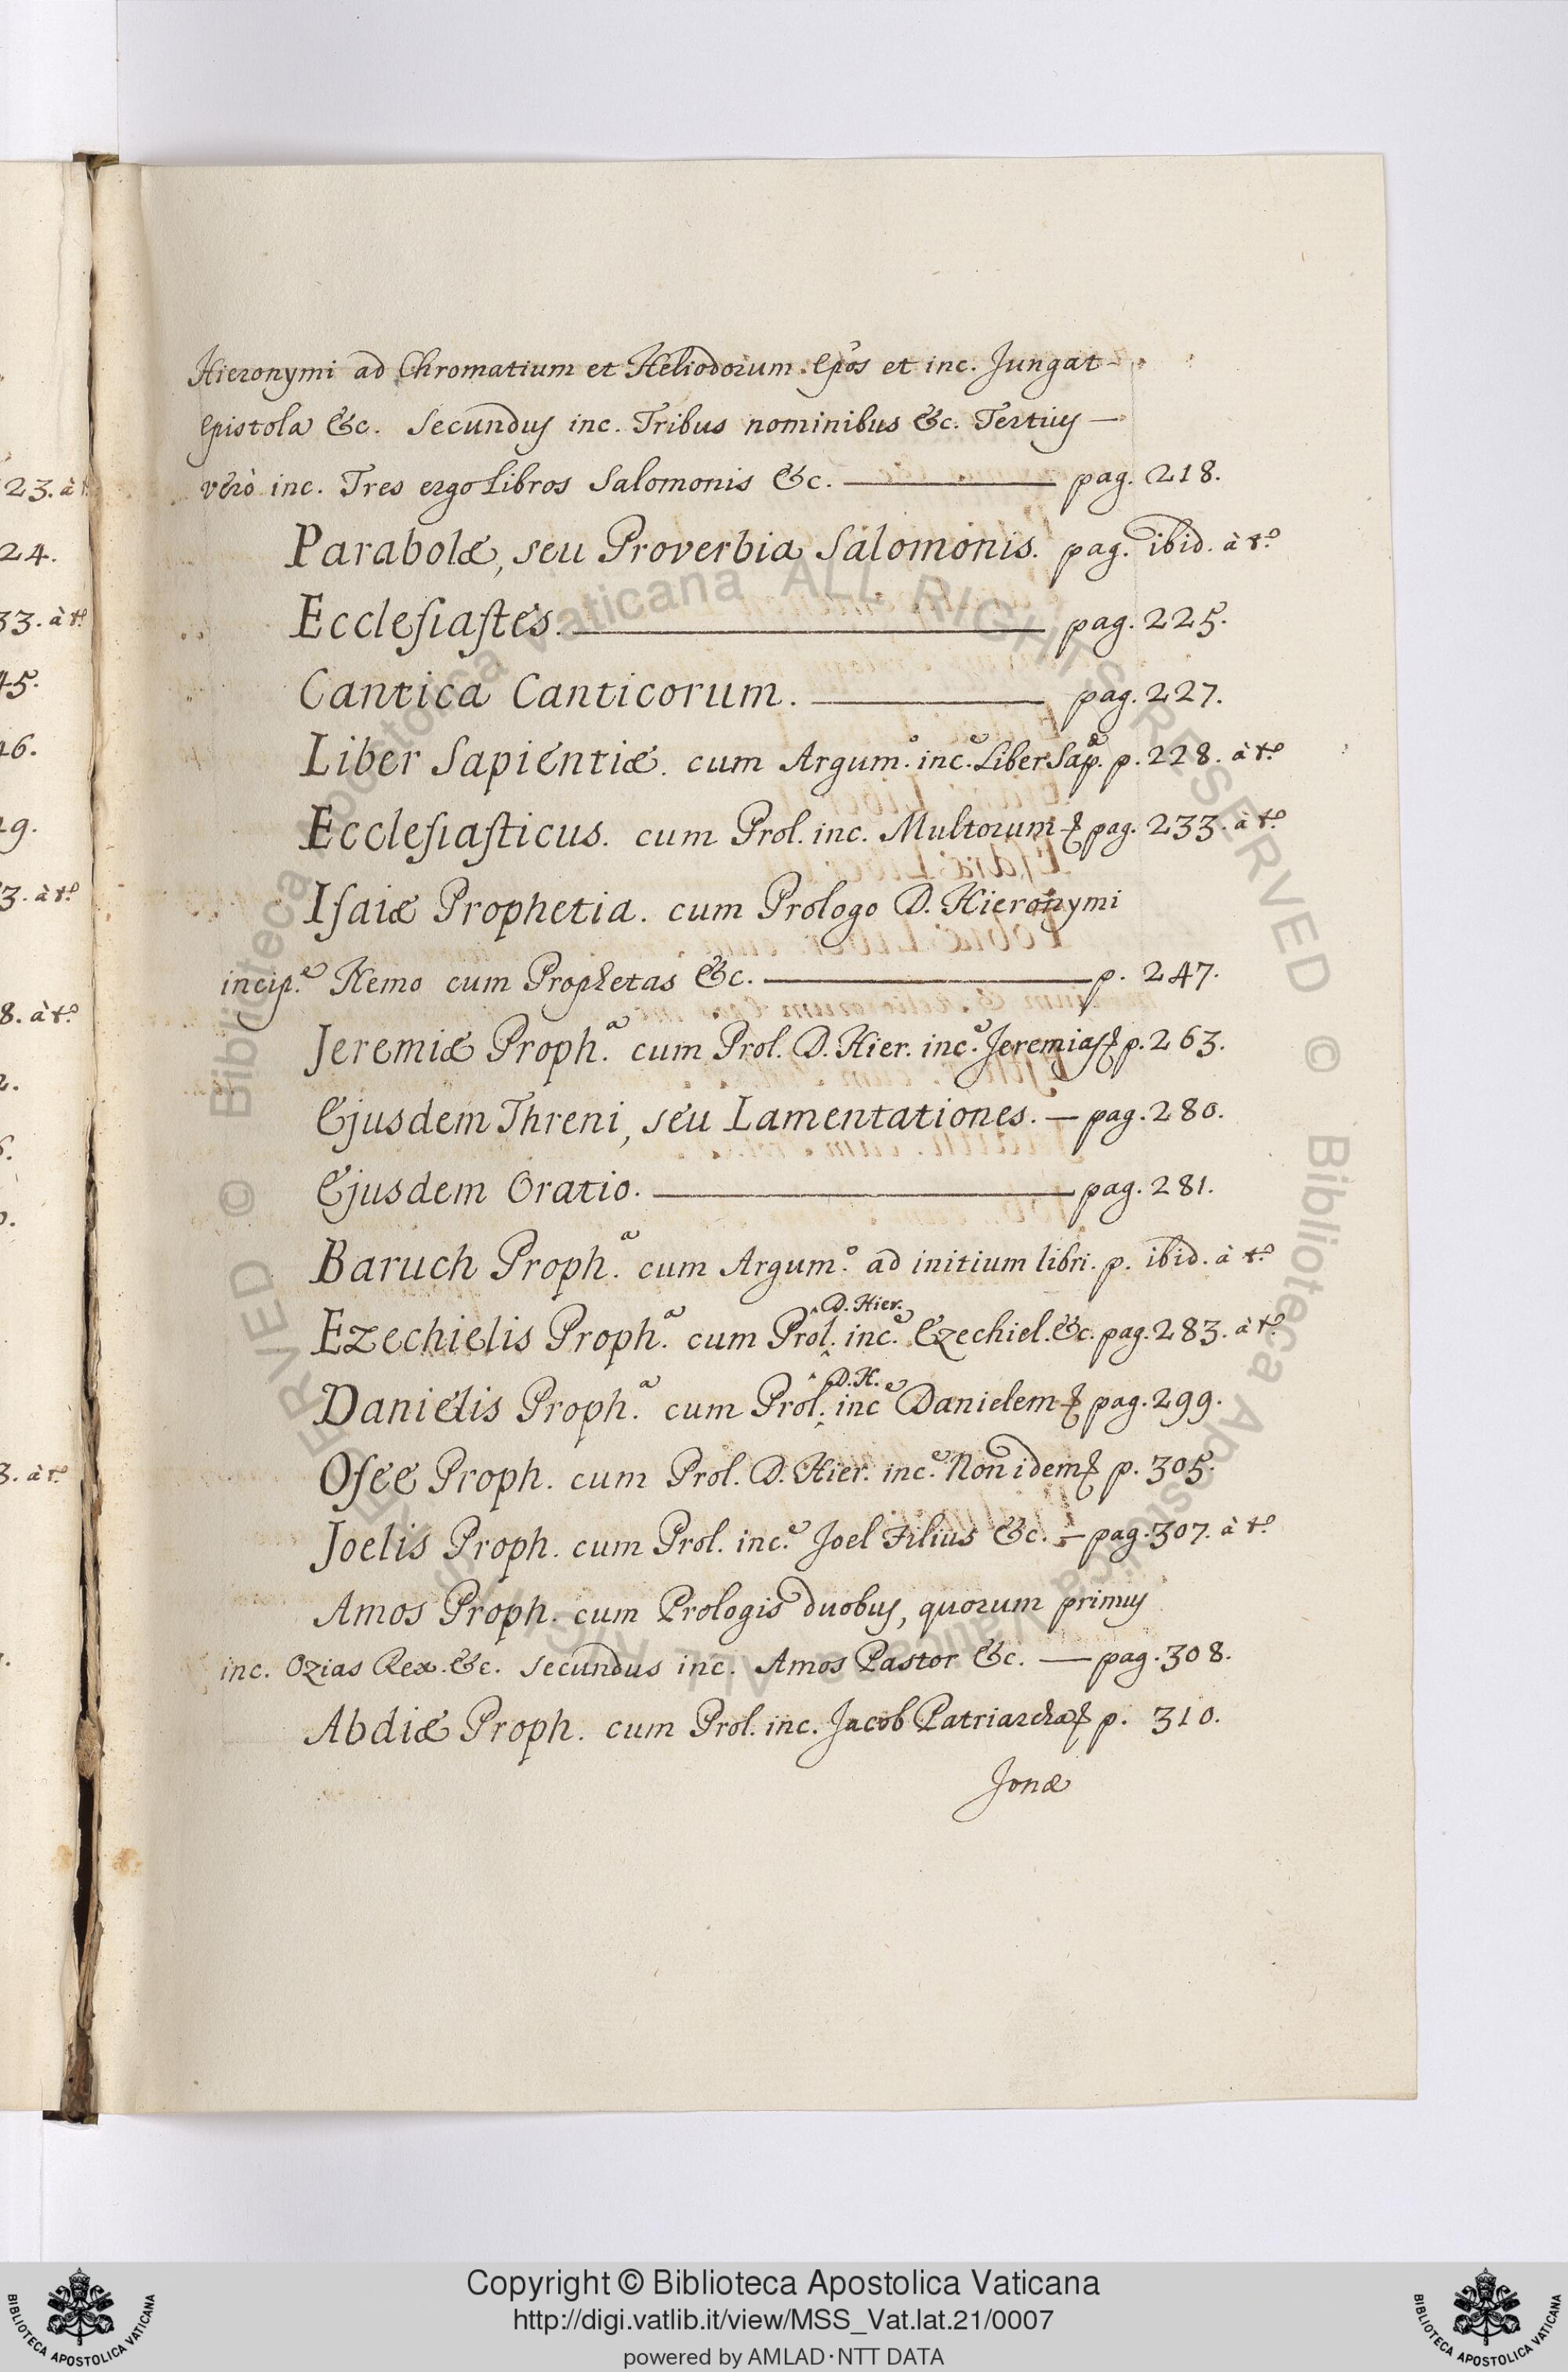 Hieronymi ad Chromatium et Heliodorum Epõs et inc. Jungat
Epistola &c. Secundus inc. Tribus nominibus &c. Tertius
vero inc. Tres ergo Libros Salomonis &c. pag. 218.
Parabolæ, seu Proverbia Salomonis. pag. ibid. à tº
Ecclesiastes. pag. 225.
Cantica Canticorum. pag. 227.
Liber Sapientiæ. cum Argum.º inc.e Liber Sap.æ p. 228. à tº
Ecclesiasticus. cum Prol. inc. Multorum & pag. 233. à tº
Isaiæ Prophetia. cum Prologo D. Hieronymi
incip.e Nemo cum Prophetas &c. p. 247.
Jeremiæ Proph.a cum Prol. D. Hier. inc.e Jeremias & p. 263.
Ejusdem Threni, seu Lamentationes. — pag. 280.
Ejusdem Oratio. pag. 281.
Baruch Proph.a cum Argum.º ad initium libri. p. ibid. à tº
Ezechielis Proph.a cum Prol. D. Hier. inc.e Ezechiel. &c. pag. 283. à tº
Danielis Proph.a cum Prol. D.H. inc.e Danielem & pag. 299.
Osee Proph. cum Prol. D. Hier. inc.e Non idem & p. 305.
Joelis Proph. cum Prol. inc.e Joel Filius &c. — pag. 307. à tº
Amos Proph. cum Prologis duobus, quorum primus
inc. Ozias Rex. &c. Secundus inc. Amos Pastor &c. — pag. 308.
Abdiæ Proph. cum Prol. inc. Jacob Patriarcha & p. 310.
Jonæ
23. à t
24.
33. à tº
45.
46.
49.
3. à tº
8. à tº
3. à tº
© Biblioteca Apostolica Vaticana ALL RIGHTS RESERVED © Biblioteca Apostolica Vaticana ALL RIGHTS RESERVED
Copyright © Biblioteca Apostolica Vaticana
http://digi.vatlib.it/view/MSS_Vat.lat.21/0007
powered by AMLAD·NTT DATA
BIBLIOTECA APOSTOLICA VATICANA
BIBLIOTECA APOSTOLICA VATICANA